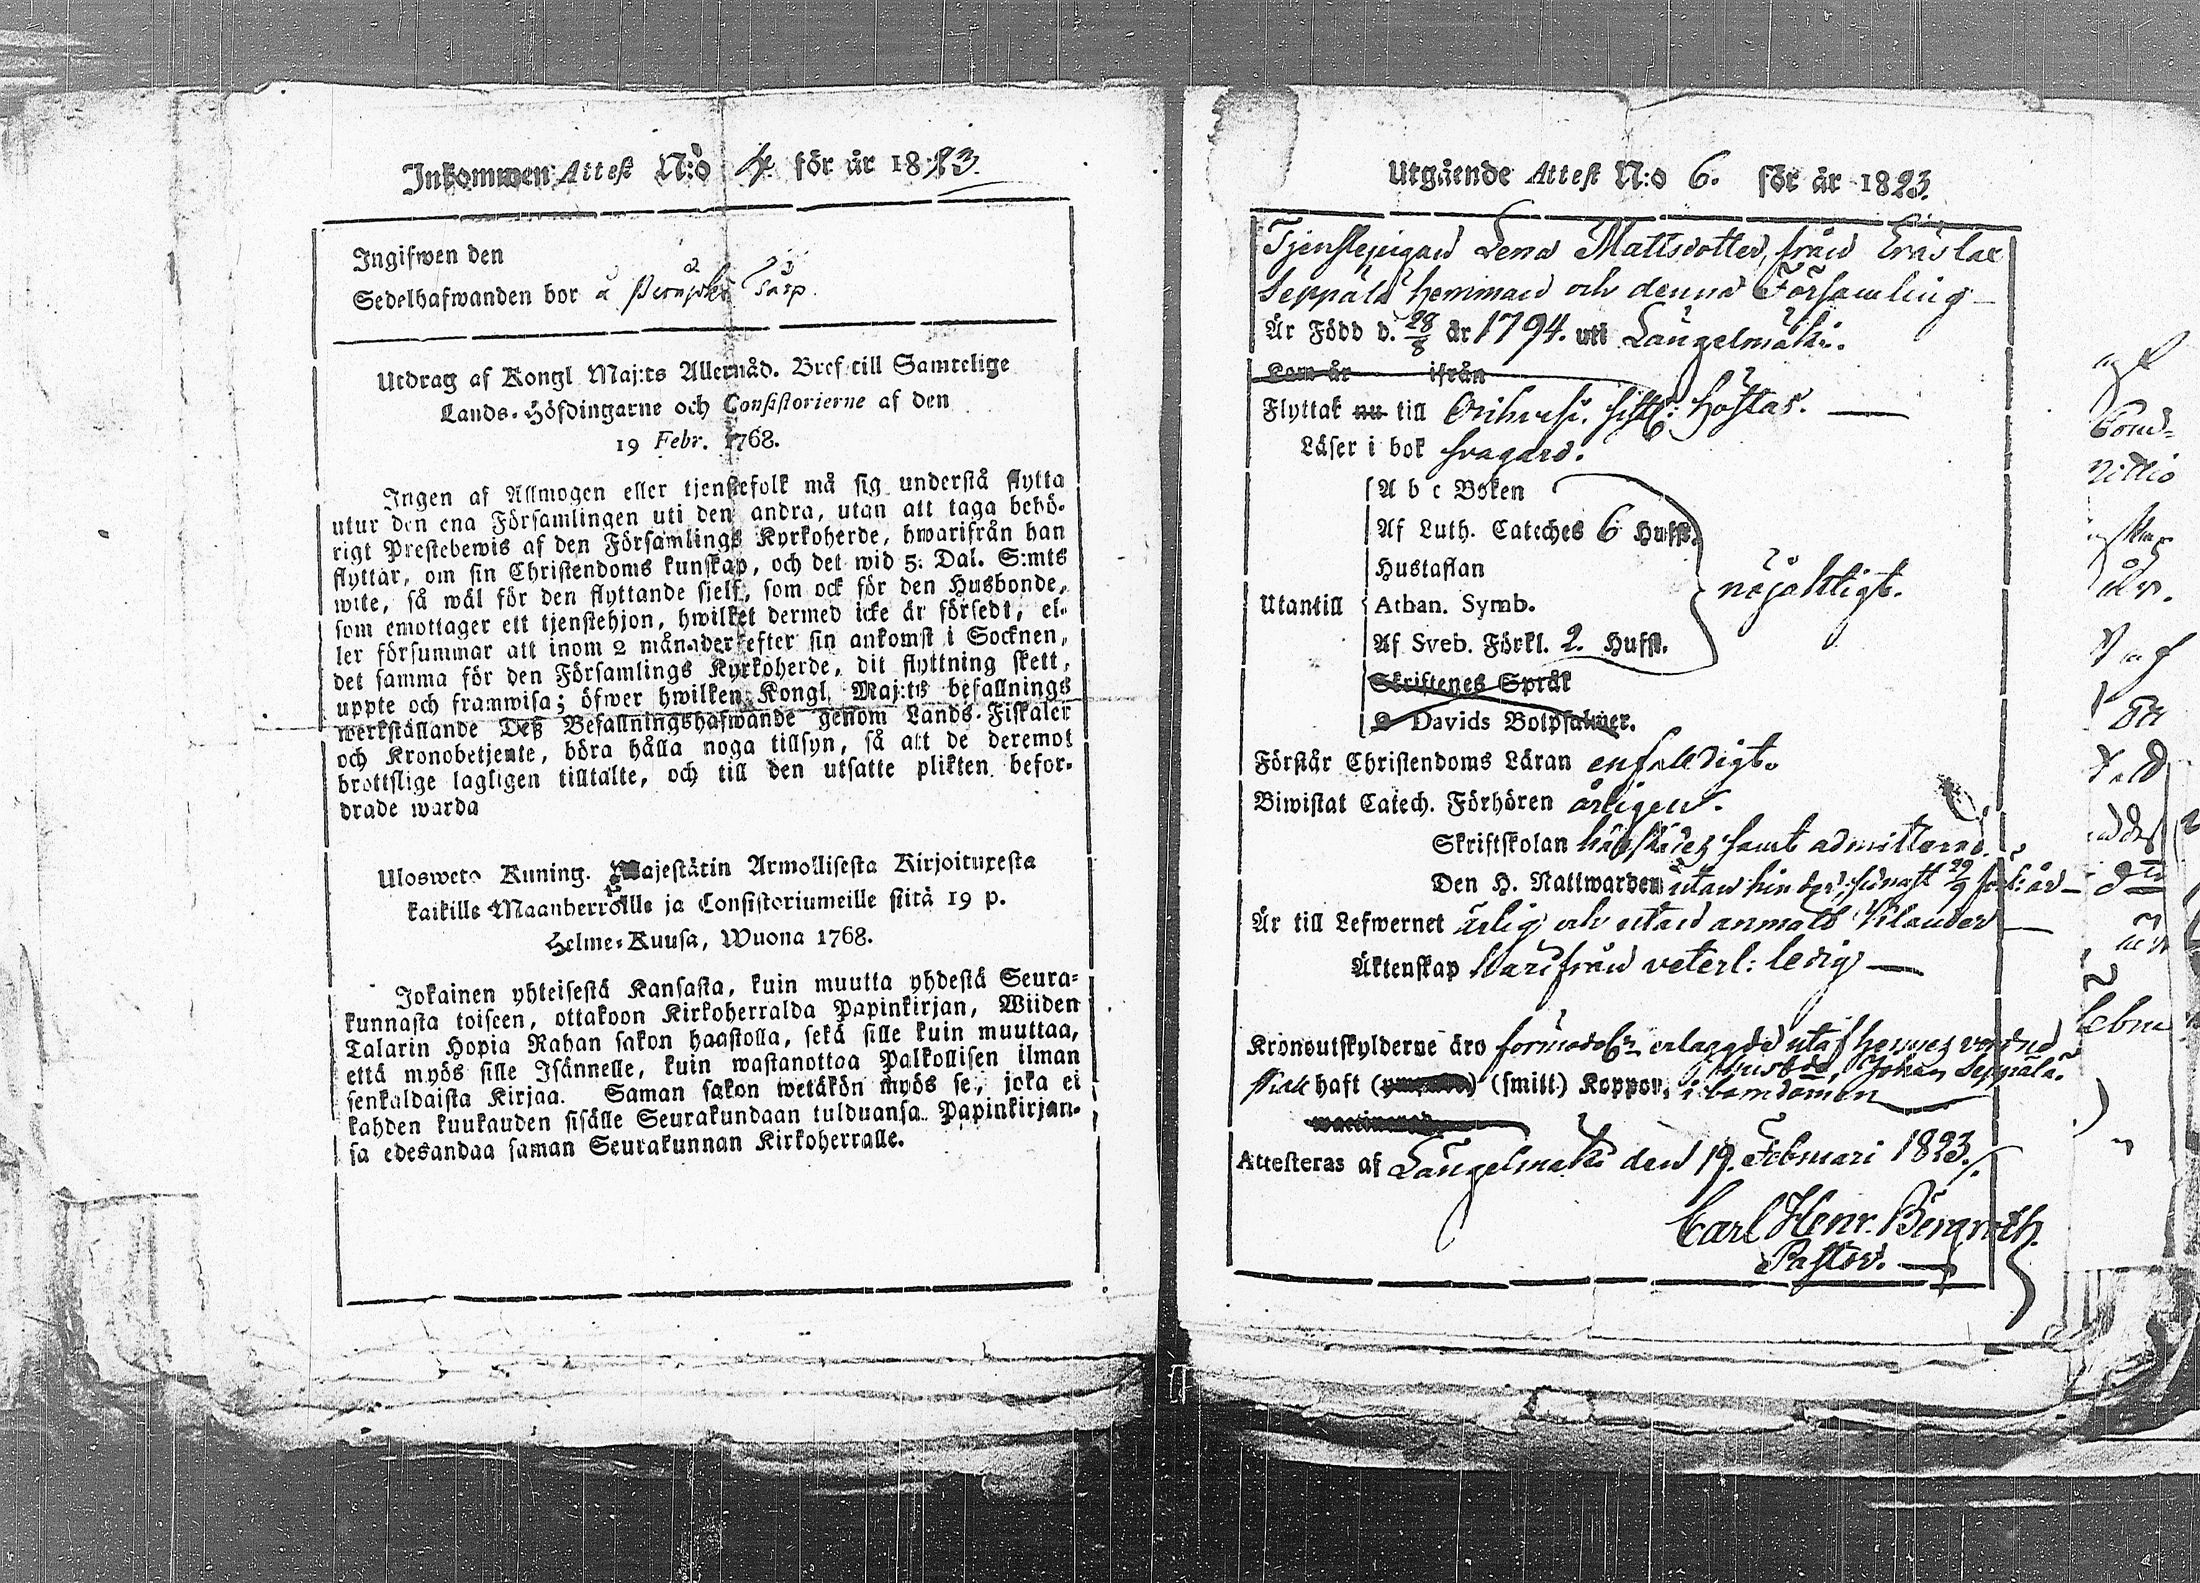 Inkommen Attest N:o 4. för år 1823.
Ingifwen den
Sedelhafwanden bor å
Utdrag af Kongl Maj:ts Allernåd. Bref till Samtelige
Lands-Höfdingarne och Consistorierne af den
19 Febr. 1768.
Ingen af Allmogen eller tjenstefolk må sig understå flytta
utur den ena Församlingen uti den andra, utan att taga behö-
rigt Prestebewis af den Församlings Kyrkoherde, hwarifrån han
flyttar, om sin Christendoms kunskap, och det wid 5: Dal. S:mts
wite, så wäl för den flyttande sielf, som ock för den Husbonde,
som emottager ett tjenstehjon, hwilket dermed icke är försedt, el-
ler försummar att inom 2 månader efter sin ankomst i Socknen,
det samma för den Församlings Kyrkoherde, dit flyttning skett,
uppte och framwisa; öfwer hwilken Kongl. Maj:ts befallnings
werkställande Deß Befallningshafwande genom Lands-Fiskaler
och Kronobetjente, böra hålla noga tillsyn, så att de deremot
brottslige lagligen tilltalte, och till den utsatte plikten befor-
drade warda
Ulosweto Kuning. Majestätin Armollisesta Kirjoituxesta
kaikille Maanherroille ja Consistoriumeille siitä 19 p.
Helme-Kuusa, Wuona 1768.
Jokainen yhteisestä Kansasta, kuin muutta yhdestä Seura-
kunnasta toiseen, ottakoon Kirkoherralda Papinkirjan, Wiiden
Talarin Hopia Rahan sakon haastolla, sekä sille kuin muuttaa,
että myös sille Isännelle, kuin wastanottaa Palkollisen ilman
senkaldaista Kirjaa. Saman sakon wetäkön myös se, joka ei
kahden kuukauden sisälle Seurakundaan tulduansa Papinkirjan-
sa edesandaa saman Seurakunnan Kirkoherralle.
Utgående Attest N:o 6. för år 1823.
Tjenstepigan Lena Mattsdotter, från Eräslax
Seppälä hemman och denna Församling
Är Född d. 28/8 år 1794. uti Längelmäki.
Kom år ifrån
Flyttat nu till Orihvesi sistl: Höstas.
Läser i bok svagare.
A b c Boken
Af Luth. Cateches 6 Hufst.
Hustaflan
Utantill Athan. Symb. nöjaktigt.
Af Sveb. Förkl. 2. Hufst.
Skriftenes Språk
Davids Botpsalmer.
Förstår Christendoms Läran enfaldigt.
Biwistat Catech. Förhören årligen.
Skriftskolan samt admitterad.
Den H. Nattwarden utan hinder, senast 29/9 förl: år
Är till Lefwernet ärlig och utan anmält
Äktenskap härifrån veterl: ledig
Kronoutskylderne äro förmodel:n erlagde utaf hennes
husbonde Johan Seppälä.
haft (smitt) Koppor, i barndomen
Attesteras af Längelmäki den 19. Februari 1823.
Carl Henr. Bergroth.
Pastor.